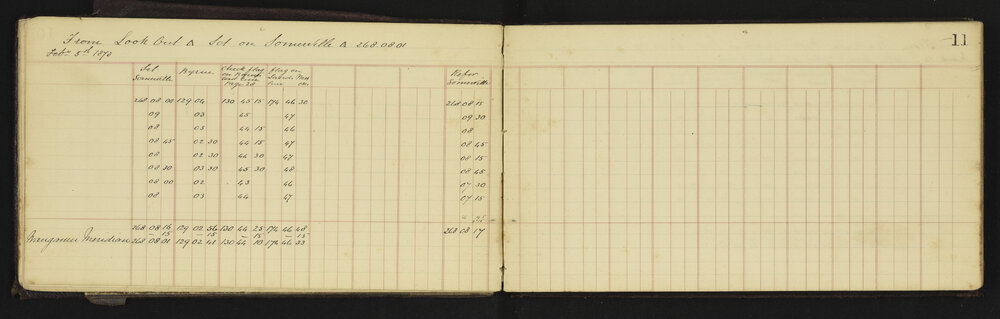 From Look Out △ Set on Somerville △ 268.08.01
11
Feby 5th 1870
Set Somerville Byrne Check flag on Byrne and line Page 28 flag on line Refer Somerville
268 08 00 129 04 130 45 15 174 46 30 268 08 15
09 03 45 47 09 30
08 03 44 15 46 08
08 45 02 30 44 15 47 08 45
08 02 30 44 30 47 08 15
08 30 03 30 45 30 48 08 45
08 00 02 43 46 07 30
08 03 44 47 07 15
268 08 16 129 02 56 130 44 25 174 46 48 268 08 17
– 15 – 15 – 15 – 15
Wanganui Meridian 268 08 01 129 02 41 130 44 10 174 46 33